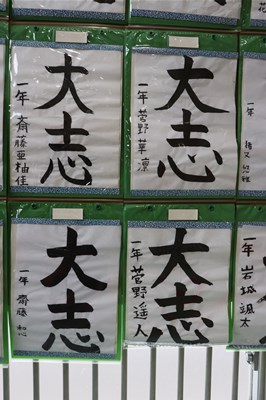 大志
一年 斉藤亜柚佳
大志
一年 菅野葉凛
一年
大志
一年 齋藤 和心
大志
一年 菅野遥人
一年 岩城颯太